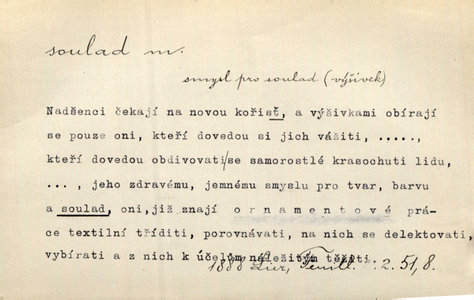 soulad m.
smysl pro soulad (výšivek)
Nadšenci čekají na novou kořist, a výživkami obírají
se pouze oni, kteří dovedou si jich vážiti, .....,
kteří dovedou obdivovati/se samorostlé krasochuti lidu,
..., jeho zdravému, jemnému smyslu pro tvar, barvu
a soulad, oni,již znají ornamentové prá-
ce textilní tříditi, porovnávati, na nich se delektovati,
vybírati a z nich k účelům náležitým těžiti.
1888 Lier, Feuill. 2. 51,8.